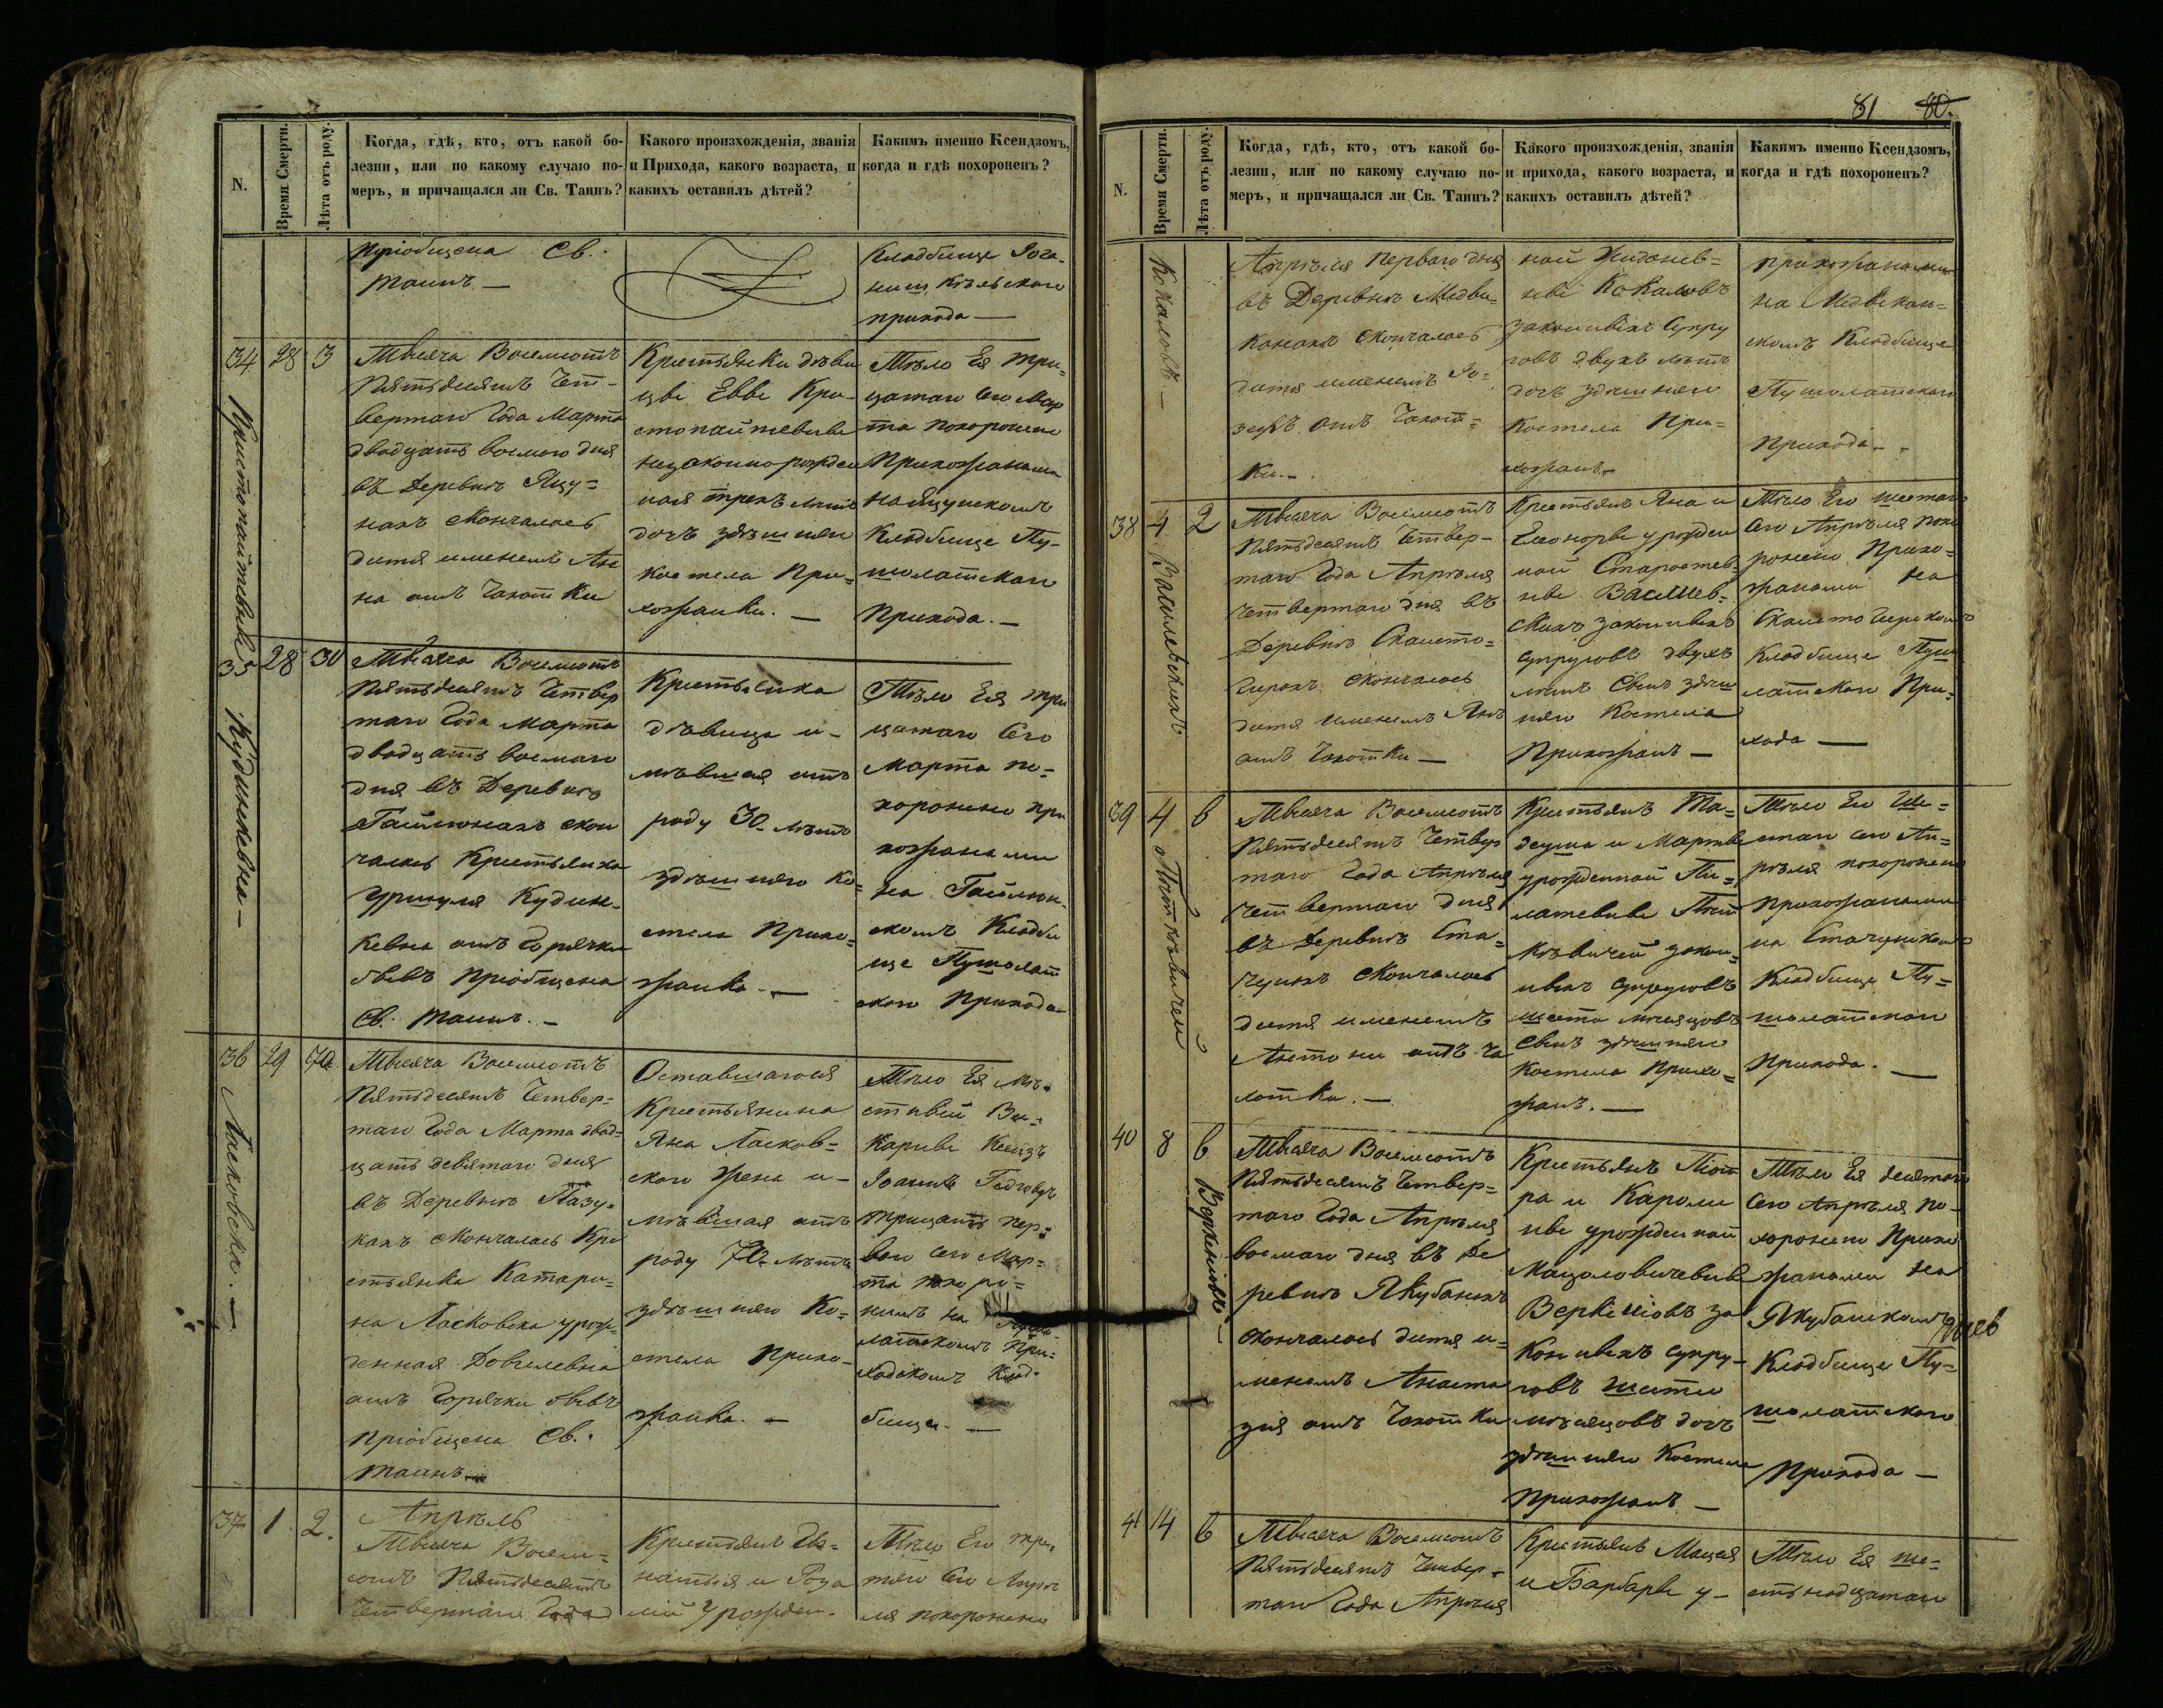 81 80.
N.
Время Смерти.
Лѣта отъ роду.
Когда, гдѣ, кто, отъ какой бо-
лезни, или по какому случаю по-
меръ, и причащался ли Св. Таинъ?
Какого произхожденія, званія
и Прихода, какого возраста, и
какихъ оставилъ дѣтей?
Какимъ именно Ксендзомъ,
когда и гдѣ похороненъ?
Пріобщена Св.
Таинъ —
Кладбище Рога-
прихода —
34 28 3
Кристопайтевны
Тысяча Восемсотъ
Пятьдесятъ Чет-
вертаго Года Марта
двадцать восмаго дня
въ Деревнѣ Яцу=
нахъ скончалось
дитя именемъ Ан
на отъ Чахотки
Крестьянки дѣви
цы Евы Кри-
стопайтевны
незаконнорожден
ная трехъ лѣтъ
дочь здѣшняго
Костела При=
хожанки. —
Тѣло Ея три=
цатаго Сего Мар
та похоронено
Прихожанами
на Яцунскомъ
Кладбище Пу-
шолатскаго
Прихода. —
35 28 30
Кудинкевна —
Тысяча Восемсотъ
Пятьдесятъ Четвер
таго Года Марта
двадцать восмаго
дня въ Деревнѣ
Гайлюнахъ скон
чалась Крестьянка
Уршуля Кудин-
кевна отъ Горячки
бывъ пріобщена
Св. Таинъ. —
Крестьянка
дѣвица и-
мѣвшая отъ
роду 30 лѣтъ
здѣшняго Ко=
стела Прихо=
жанка. —
Тѣло Ея три
цатаго Сего
Марта по=
хоронено при
хожанами
на Гайлюн-
скомъ Кладби
ще Пушолат
скаго Прихода
36 29 70
Ласковска. —
Тысяча Восемсотъ
Пятьдесятъ Четвер=
таго Года Марта двад=
цать девятаго дня
въ Деревнѣ Пазу=
кахъ скончалась Кре
стьянка Катари=
на Ласковска урож=
денная Довгилевна
отъ Горячки бывъ
пріобщена Св.
Таинъ
Оставшагося
Крестьянина
Яна Ласков=
скаго Жена и-
мѣвшая отъ
роду 70 лѣтъ
здѣшняго Ко=
стела Прихо-
жанка. —
Тѣло Ея Мѣ=
стный Ви=
карный Ксендзъ
Іоаннъ
тридцать пер=
ваго сего Мар=
та похоро=
нилъ на Пушо-
латскомъ При=
ходскомъ Клад-
бище. —
37 1 2.
Апрѣль
Тысяча Восем=
сотъ Пятьдесятъ
Четвертаго Года
Крестьянъ Иг=
натія и Роза
ліи Урожден-
Тѣло Его тре=
тяго Сего Апрѣ
ля похоронено
N.
Время Смерти.
Лѣта отъ роду.
Когда, гдѣ, кто, отъ какой бо-
лезни, или по какому случаю по-
меръ, и причащался ли Св. Таинъ?
Какого произхожденія, званія
и прихода, какого возраста, и
какихъ оставилъ дѣтей?
Какимъ именно Ксендзомъ,
когда и гдѣ похороненъ?
Апрѣля перваго дня
въ Деревнѣ Медви=
канахъ скончалось
дитя именемъ Ю=
зефъ отъ Чахот=
ки. —
законныхъ Супру
говъ двухъ лѣтъ
здѣшняго
Костела При=
хожанъ —
прихожанами
на Медвикан=
скомъ Кладбище
Пушолатскаго
Прихода. -
38 4 2
Василевскихъ
Тысяча Восемсотъ
Пятьдесятъ Четвер-
таго Года Апрѣля
четвертаго дня въ
Деревнѣ
скончалось
дитя именемъ Янъ
отъ Чахотки —
Крестьянъ Яна и
Елеоноры урожден
ной
Василев=
скихъ законныхъ
супруговъ двухъ
лѣтъ Сынъ здѣш
няго Костела
Прихожанъ —
Тѣло Его шестаго
Сего Апрѣля похо
ронено Прихо=
жанами на
Кладбище Пуш
латскаго При=
хода —
39 4 6
Тысяча Восемсотъ
Пятьдесятъ Четвер
таго Года Апрѣля
четвертаго дня
въ Деревнѣ Ста=
чунахъ скончалось
дитя именемъ
Антони отъ Ча
хотки. —
Крестьянъ Та=
деуша и Марты
урожденной Пи=
латевны
законныхъ супруговъ
шести мѣсяцовъ
Сынъ здѣшняго
Костела Прихо=
жанъ. —
Тѣло Его Ше=
стаго сего Ап=
рѣля похоронено
Прихожанами
на Стачунскомъ
Кладбище Пу=
шолатскаго
Прихода. —
40 8 6
Тысяча Восемсотъ
Пятьдесятъ Четвер=
таго Года Апрѣля
восмаго дня въ Де
ревнѣ Якубанахъ
скончалось дитя и=
менемъ Анаста
зія отъ Чахотки
Крестьянъ Піот
ра и Кароли
ны урожденной
за
конныхъ супру-
говъ шести
мѣсяцовъ дочь
здѣшняго Костела
Прихожанъ —
Тѣло Ея десятаго
Сего Апрѣля по-
хоронено Прихо
жанами на
Якубанскомъ
Кладбище Пу=
шолатскаго
Прихода —
41 14 6
Тысяча Восемсотъ
Пятьдесятъ Четвер-
таго Года Апрѣля
Крестьянъ Мацея
и Барбары у-
Тѣло Ея ше=
стьнадцатаго